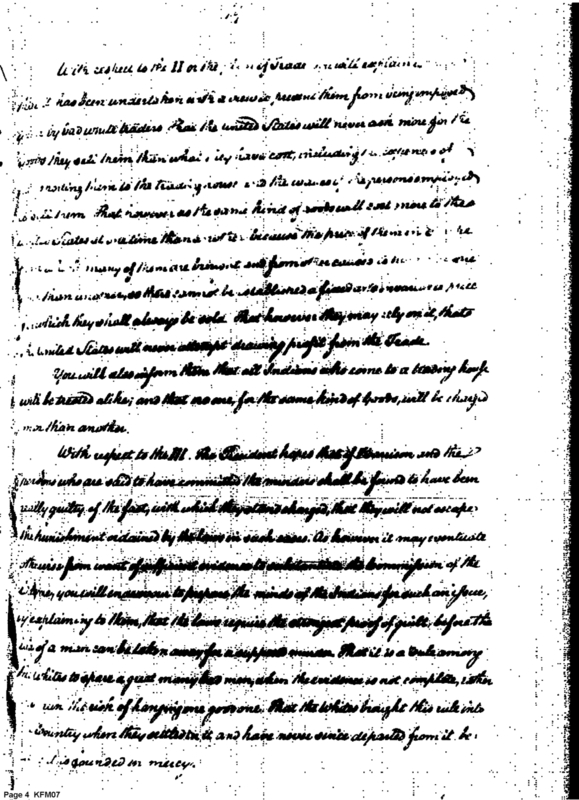 With respect to the II or the plan of Trade you will explain
it has been undertaken with a view to prevent them from being imposed
by bad white traders. That the United States will never ask more for the
goods they sell them than what they have cost, including the expences of
them to the trading house and the wages of the persons employed
to sell them. That however as the same kind of goods will cost more to the
United States at one time than another because the price of them in the
many of them are brought and from other causes is
than another, so there cannot be established a fixed and invariable price
which they shall always be sold. That however they may rely on it, that
the United States will never attempt drawing profit from the Trade.
You will also inform them that all Indians who come to a trading house
will be treated alike; and that no one, for the same kind of Goods, will be charged
more than another.
With respect to the III. The President hopes that if Harrison and the
persons who are said to have committed the murders shall be found to have been
really guilty of the fact, with which they stand charged, that they will not escape
the punishment ordained by the laws in such cases. As however it may eventuate
otherwise from want of sufficient evidence to substantiate the commission of the
crime, you will endeavour to prepare the minds of the Indians for such an issue,
by explaining to them, that the laws require the strongest proof of guilt, before the
life of a man can be taken away for a supposed murder. That it is a rule among
the whites to spare a great many bad men, when the evidence is not complete, rather
run the risk of hanging one good one. That the Whites brought this rule into
Country when they settled in it and have never since departed from it, be
it is founded in mercy.
Page 4 KFM07